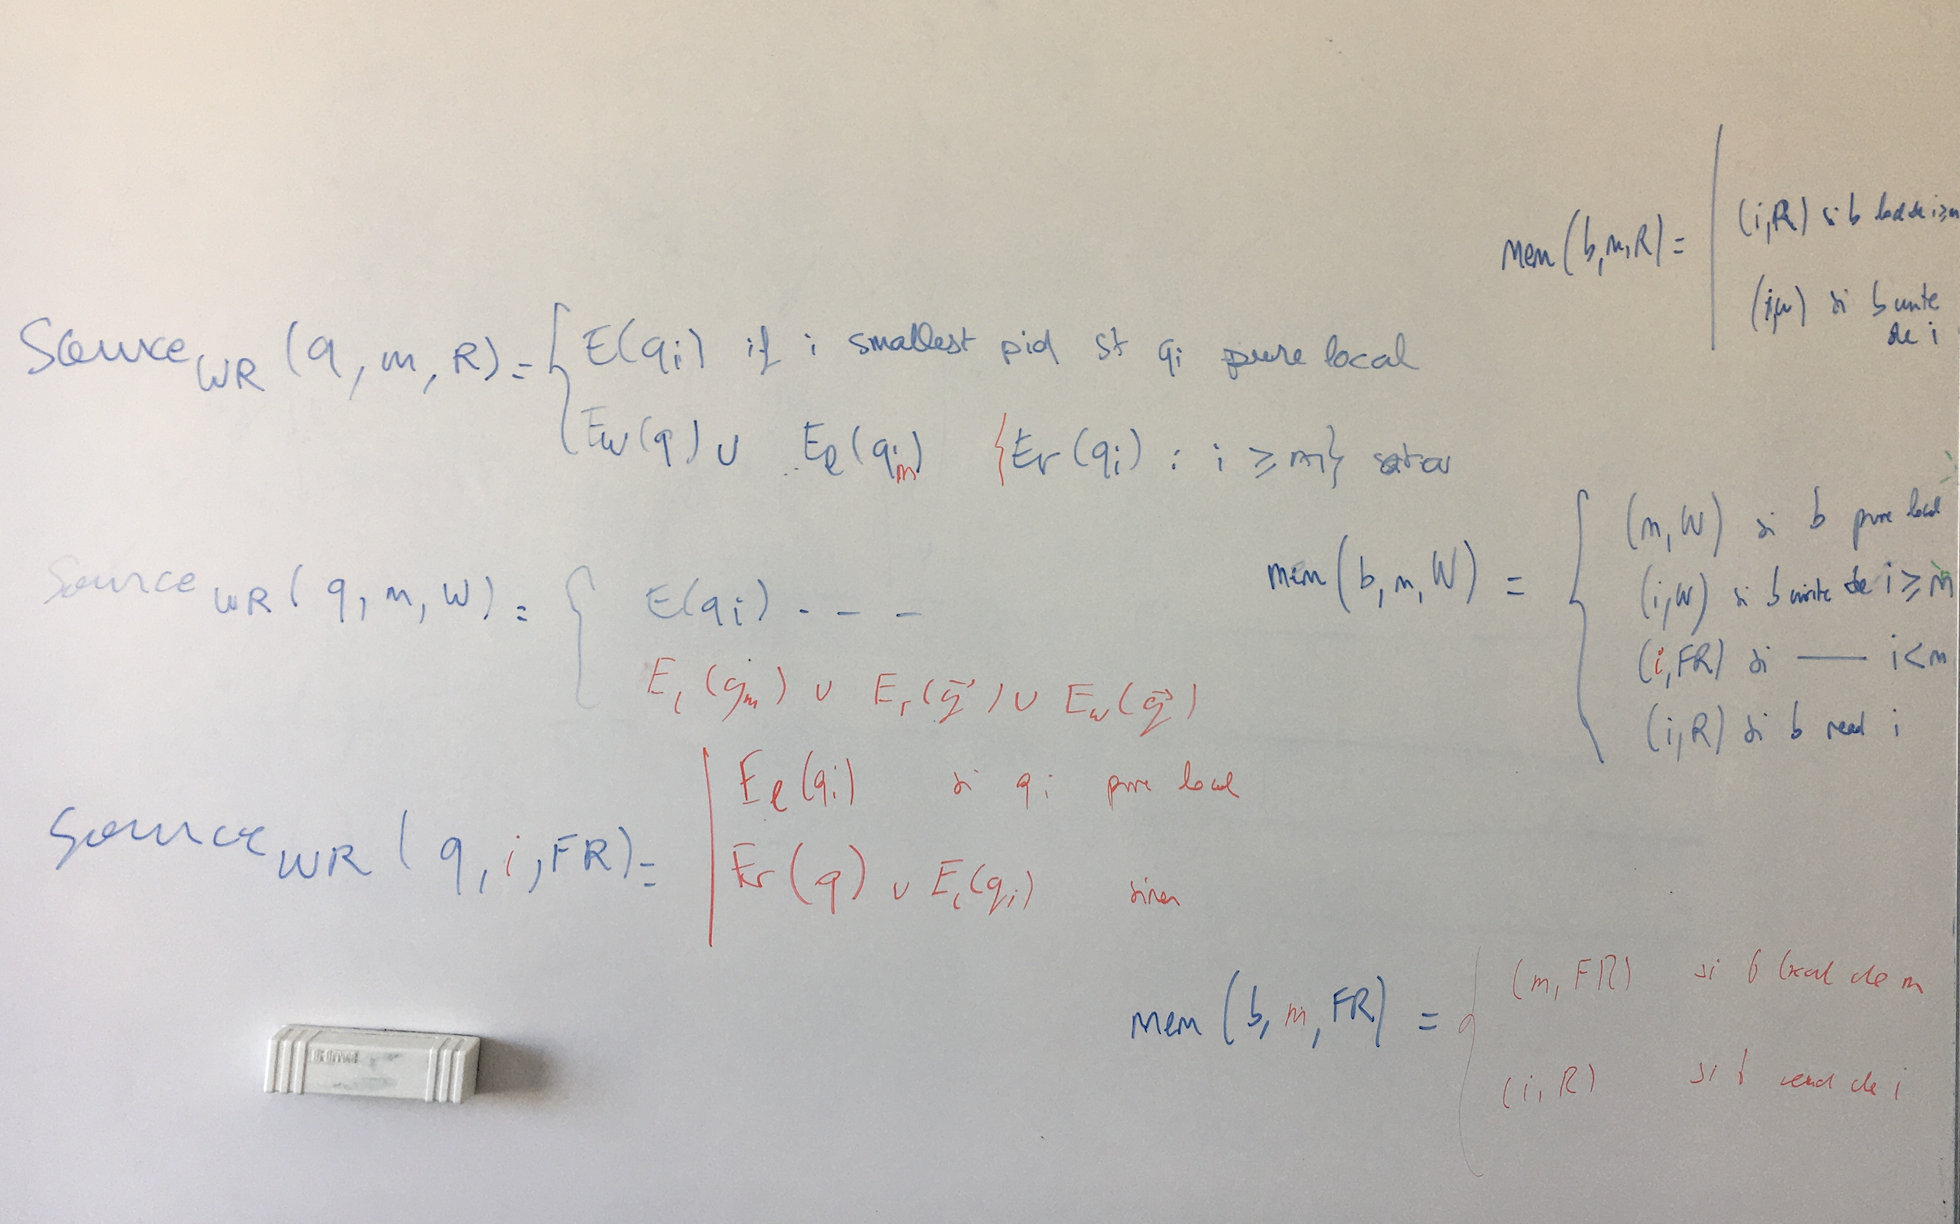 mem(b,m,R) =
(i,R) si b
(i,w) si b write
de i
Source_WR (q, m, R) = { E(q_i) if i smallest pid st q_i pure local
E_w(q) ∪ E_l(q_m) {E_r(q_i) : i ≥ m}
Source_WR (q, m, W) = { E(q_i) - - -
E_l(q_m) ∪ E_r(q⃗) ∪ E_w(q⃗)
mem(b,m,W) =
(m,W) si b pure local
(i,W) si b write de i ≥ m
(i,FR) si — i < m
(i,R) si b read i
Source_WR (q, i, FR) =
E_l(q_i) si q_i pure local
E_r(q) ∪ E_l(q_i) sinon
mem(b,m,FR) =
(m,FR) si b local de m
(i,R) si b read de i